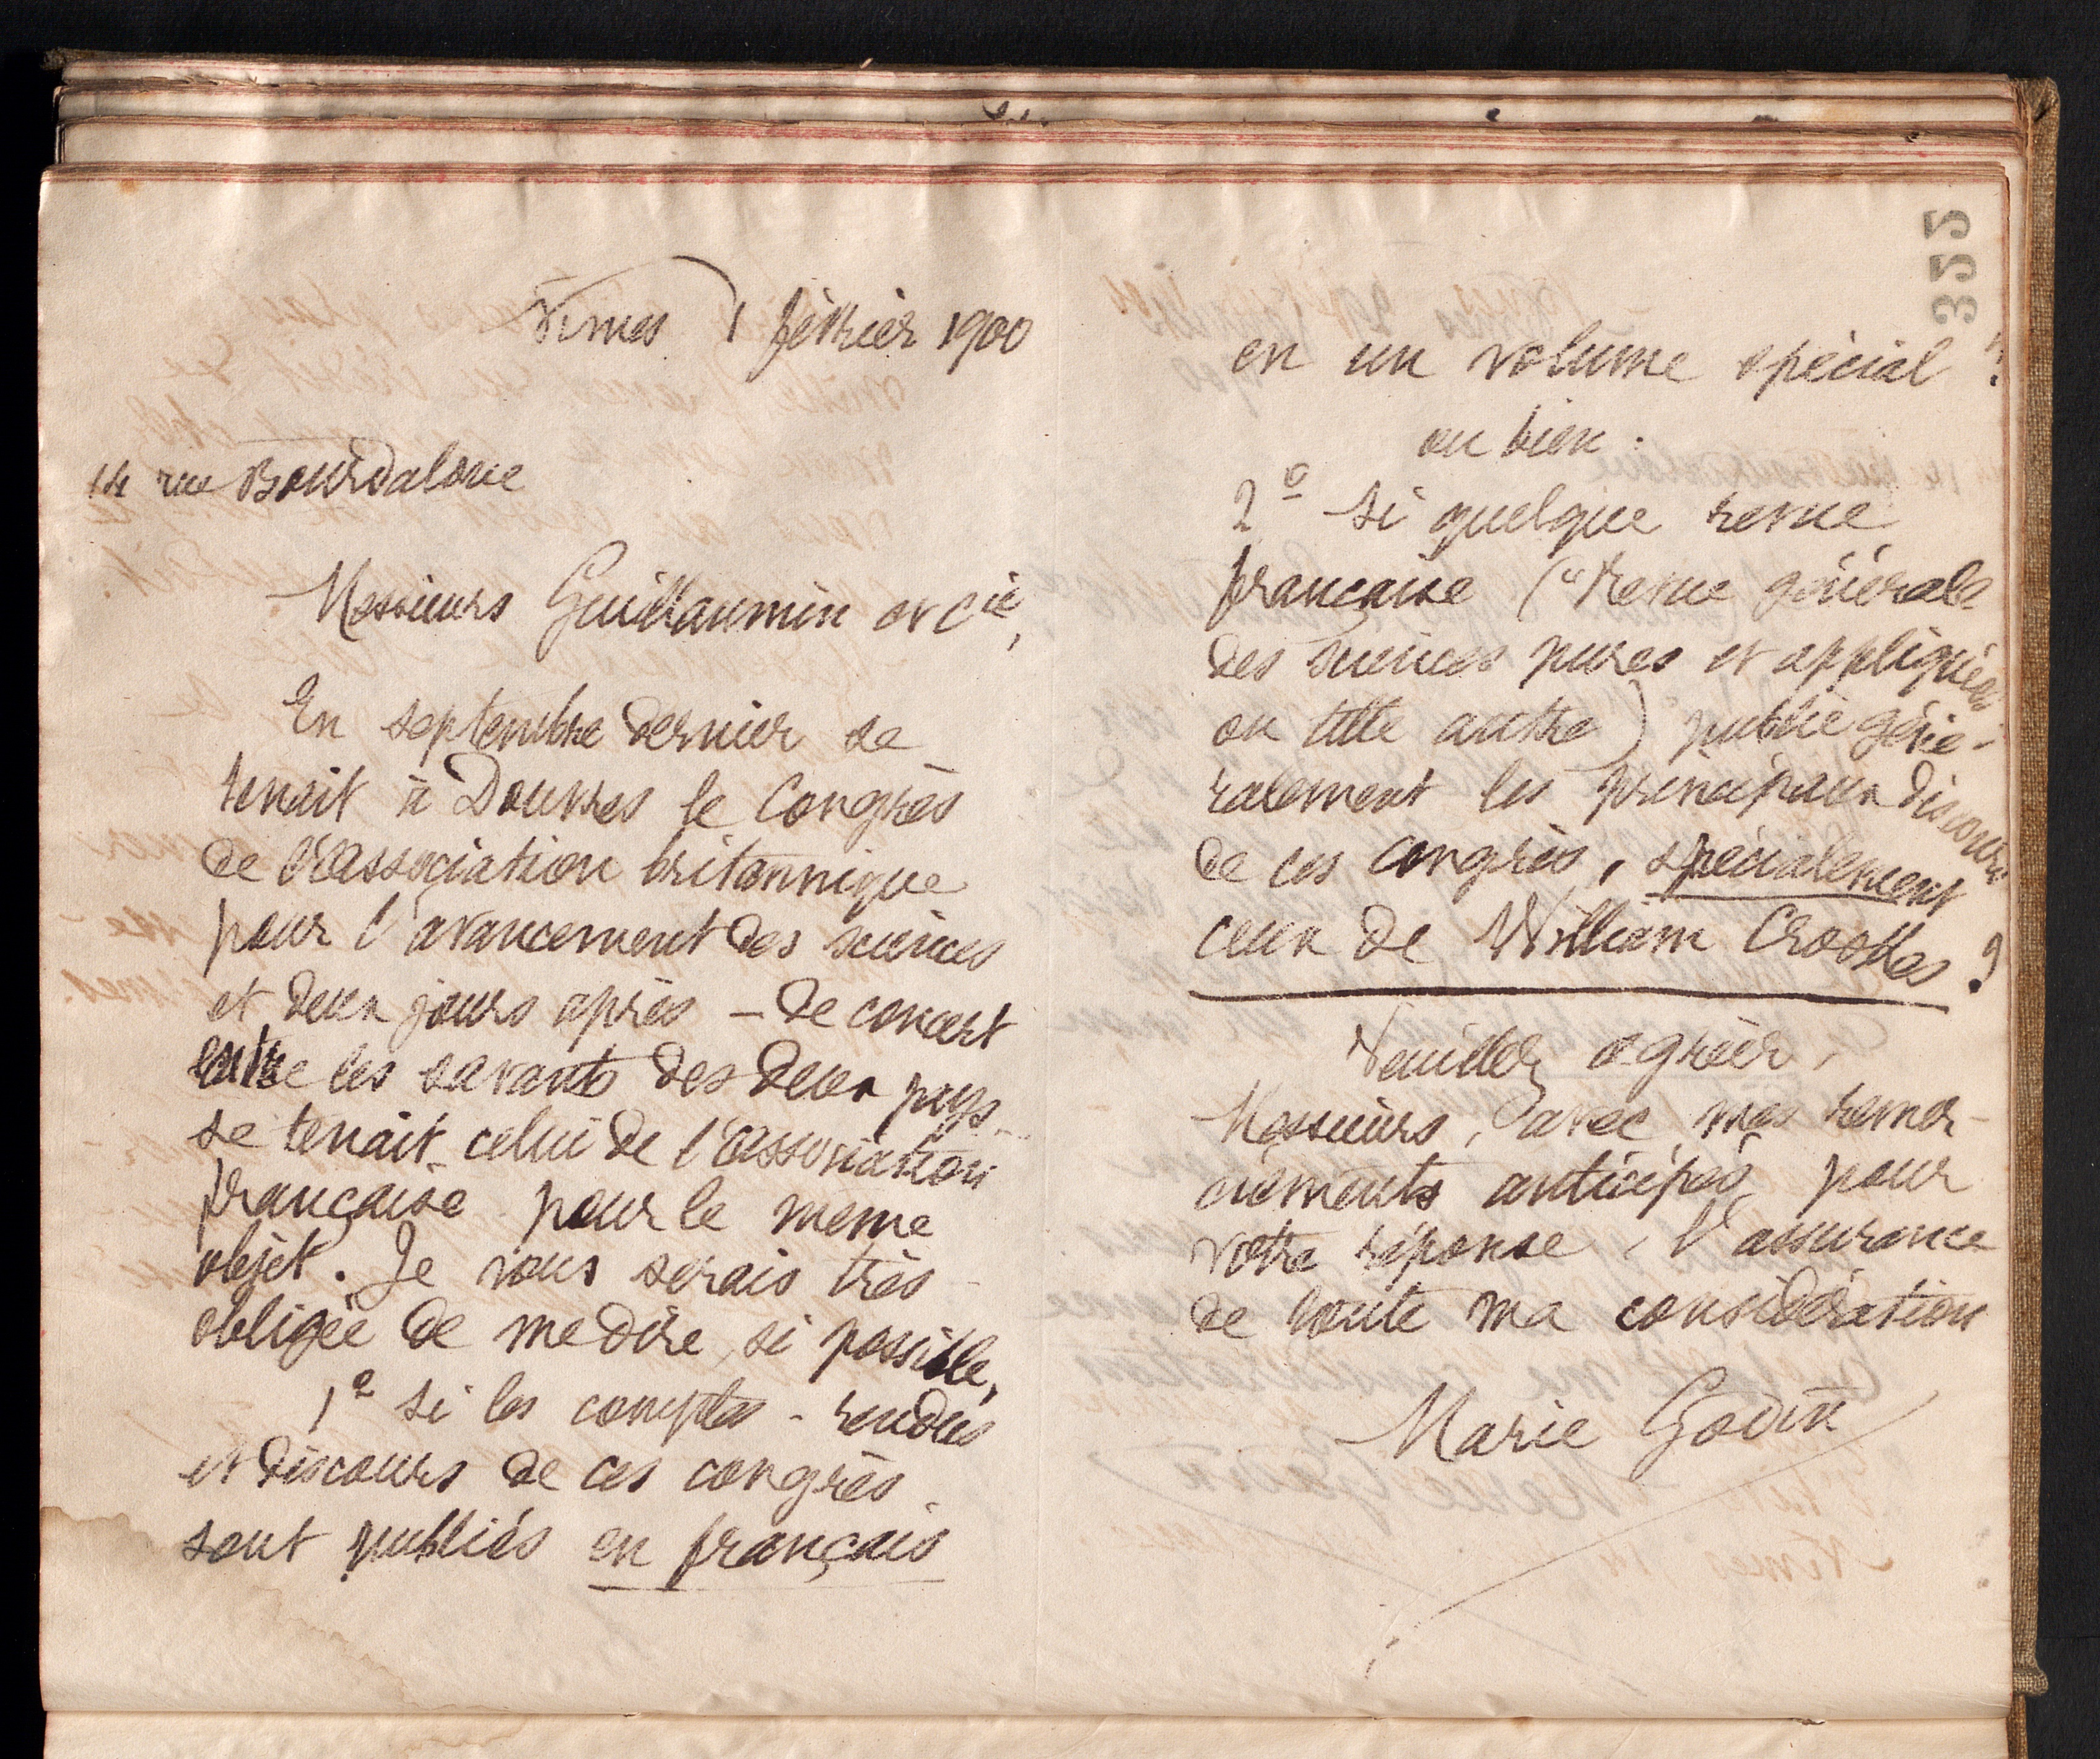 Nîmes 1 février 1900
14 rue Bourdaloue
Messieurs Guillaumin et Cie,
En septembre dernier se
tenait à Douvres le Congrès
de l'association britannique
pour l'avancement des sciences
et deux jours après – de concert
entre les savants des deux pays –
se tenait celui de l'association
française pour le meme
objet. Je vous serais très
obligée de me dire, si possible,
1º si les comptes-rendus
et discours de ces congrès
sont publiés en français
en un volume spécial ?
ou bien :
2º si quelque revue
française ("Revue générale
des sciences pures et appliquées"
ou telle autre) publie géné-
ralement les principaux discours
de ces congrès, spécialement
ceux de William Crookes ?
Veuillez agréer,
Messieurs, avec mes remer-
ciements anticipés pour
votre réponse, l'assurance
de toute ma considération
Marie Godin
355